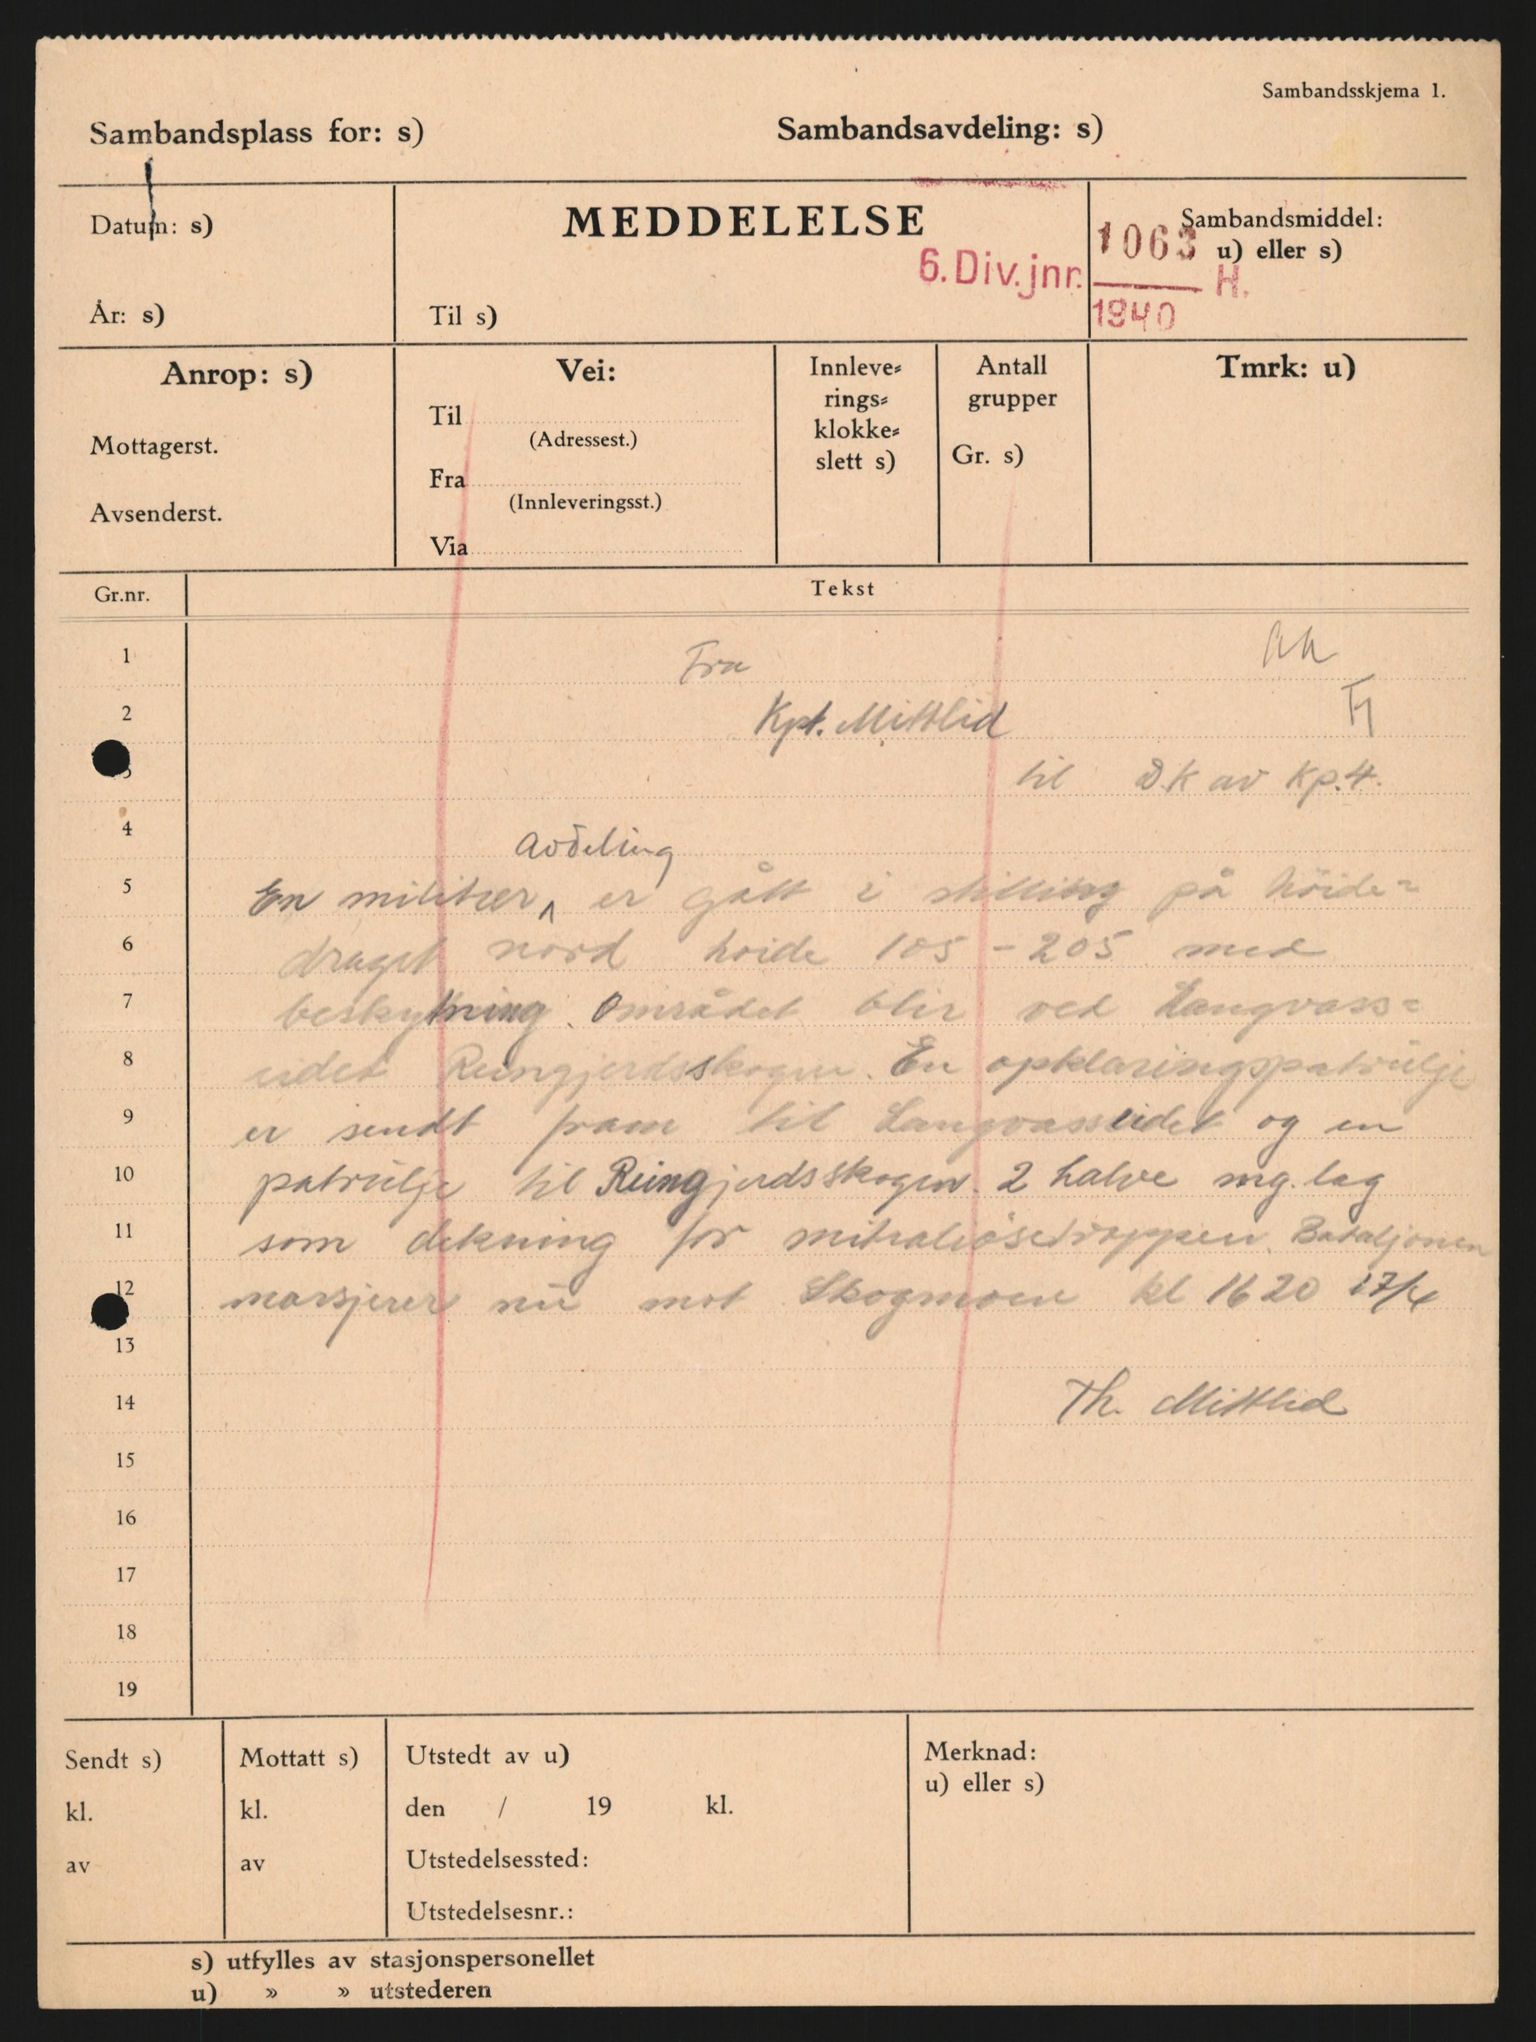 Sambandsskjema 1.
Sambandsplass for: s)
Sambandsavdeling: s)
Datum: s)
MEDDELELSE
Sambandsmiddel:
u) eller s)
6. Div. jnr. 1063 H.
1940
År: s)
Til s)
Anrop: s)
Vei:
Innleve=
rings=
klokke=
slett s)
Antall
grupper
Gr. s)
Tmrk: u)
Mottagerst.
Avsenderst.
Til
(Adressest.)
Fra
(Innleveringsst.)
Via
Gr.nr.
Tekst
1 Fra
2 Kpt. Mittlid
3 til D.K av Kp.4.
4 avdeling
5 En militær er gått i stilling på höide=
6 draget nord höide 105 - 205 med
7 beskytning. Området blir ved Langvass=
8 eidet Reingjerdsskogen. En opklaringspatrulje
9 er sendt fram til Langvasseidet og en
10 patrulje til Reingjerdsskogen. 2 halve mg. lag
11 som dekning for mitraljösetroppen. Bataljonen
12 marsjerer nu mot Skogmoen kl 1620 27/4
13
14 Th. Mittlid
15
16
17
18
19
Sendt s)
kl.
av
Mottatt s)
kl.
av
Utstedt av u)
den / 19 kl.
Utstedelsessted:
Utstedelsesnr.:
Merknad:
u) eller s)
s) utfylles av stasjonspersonellet
u) » » utstederen